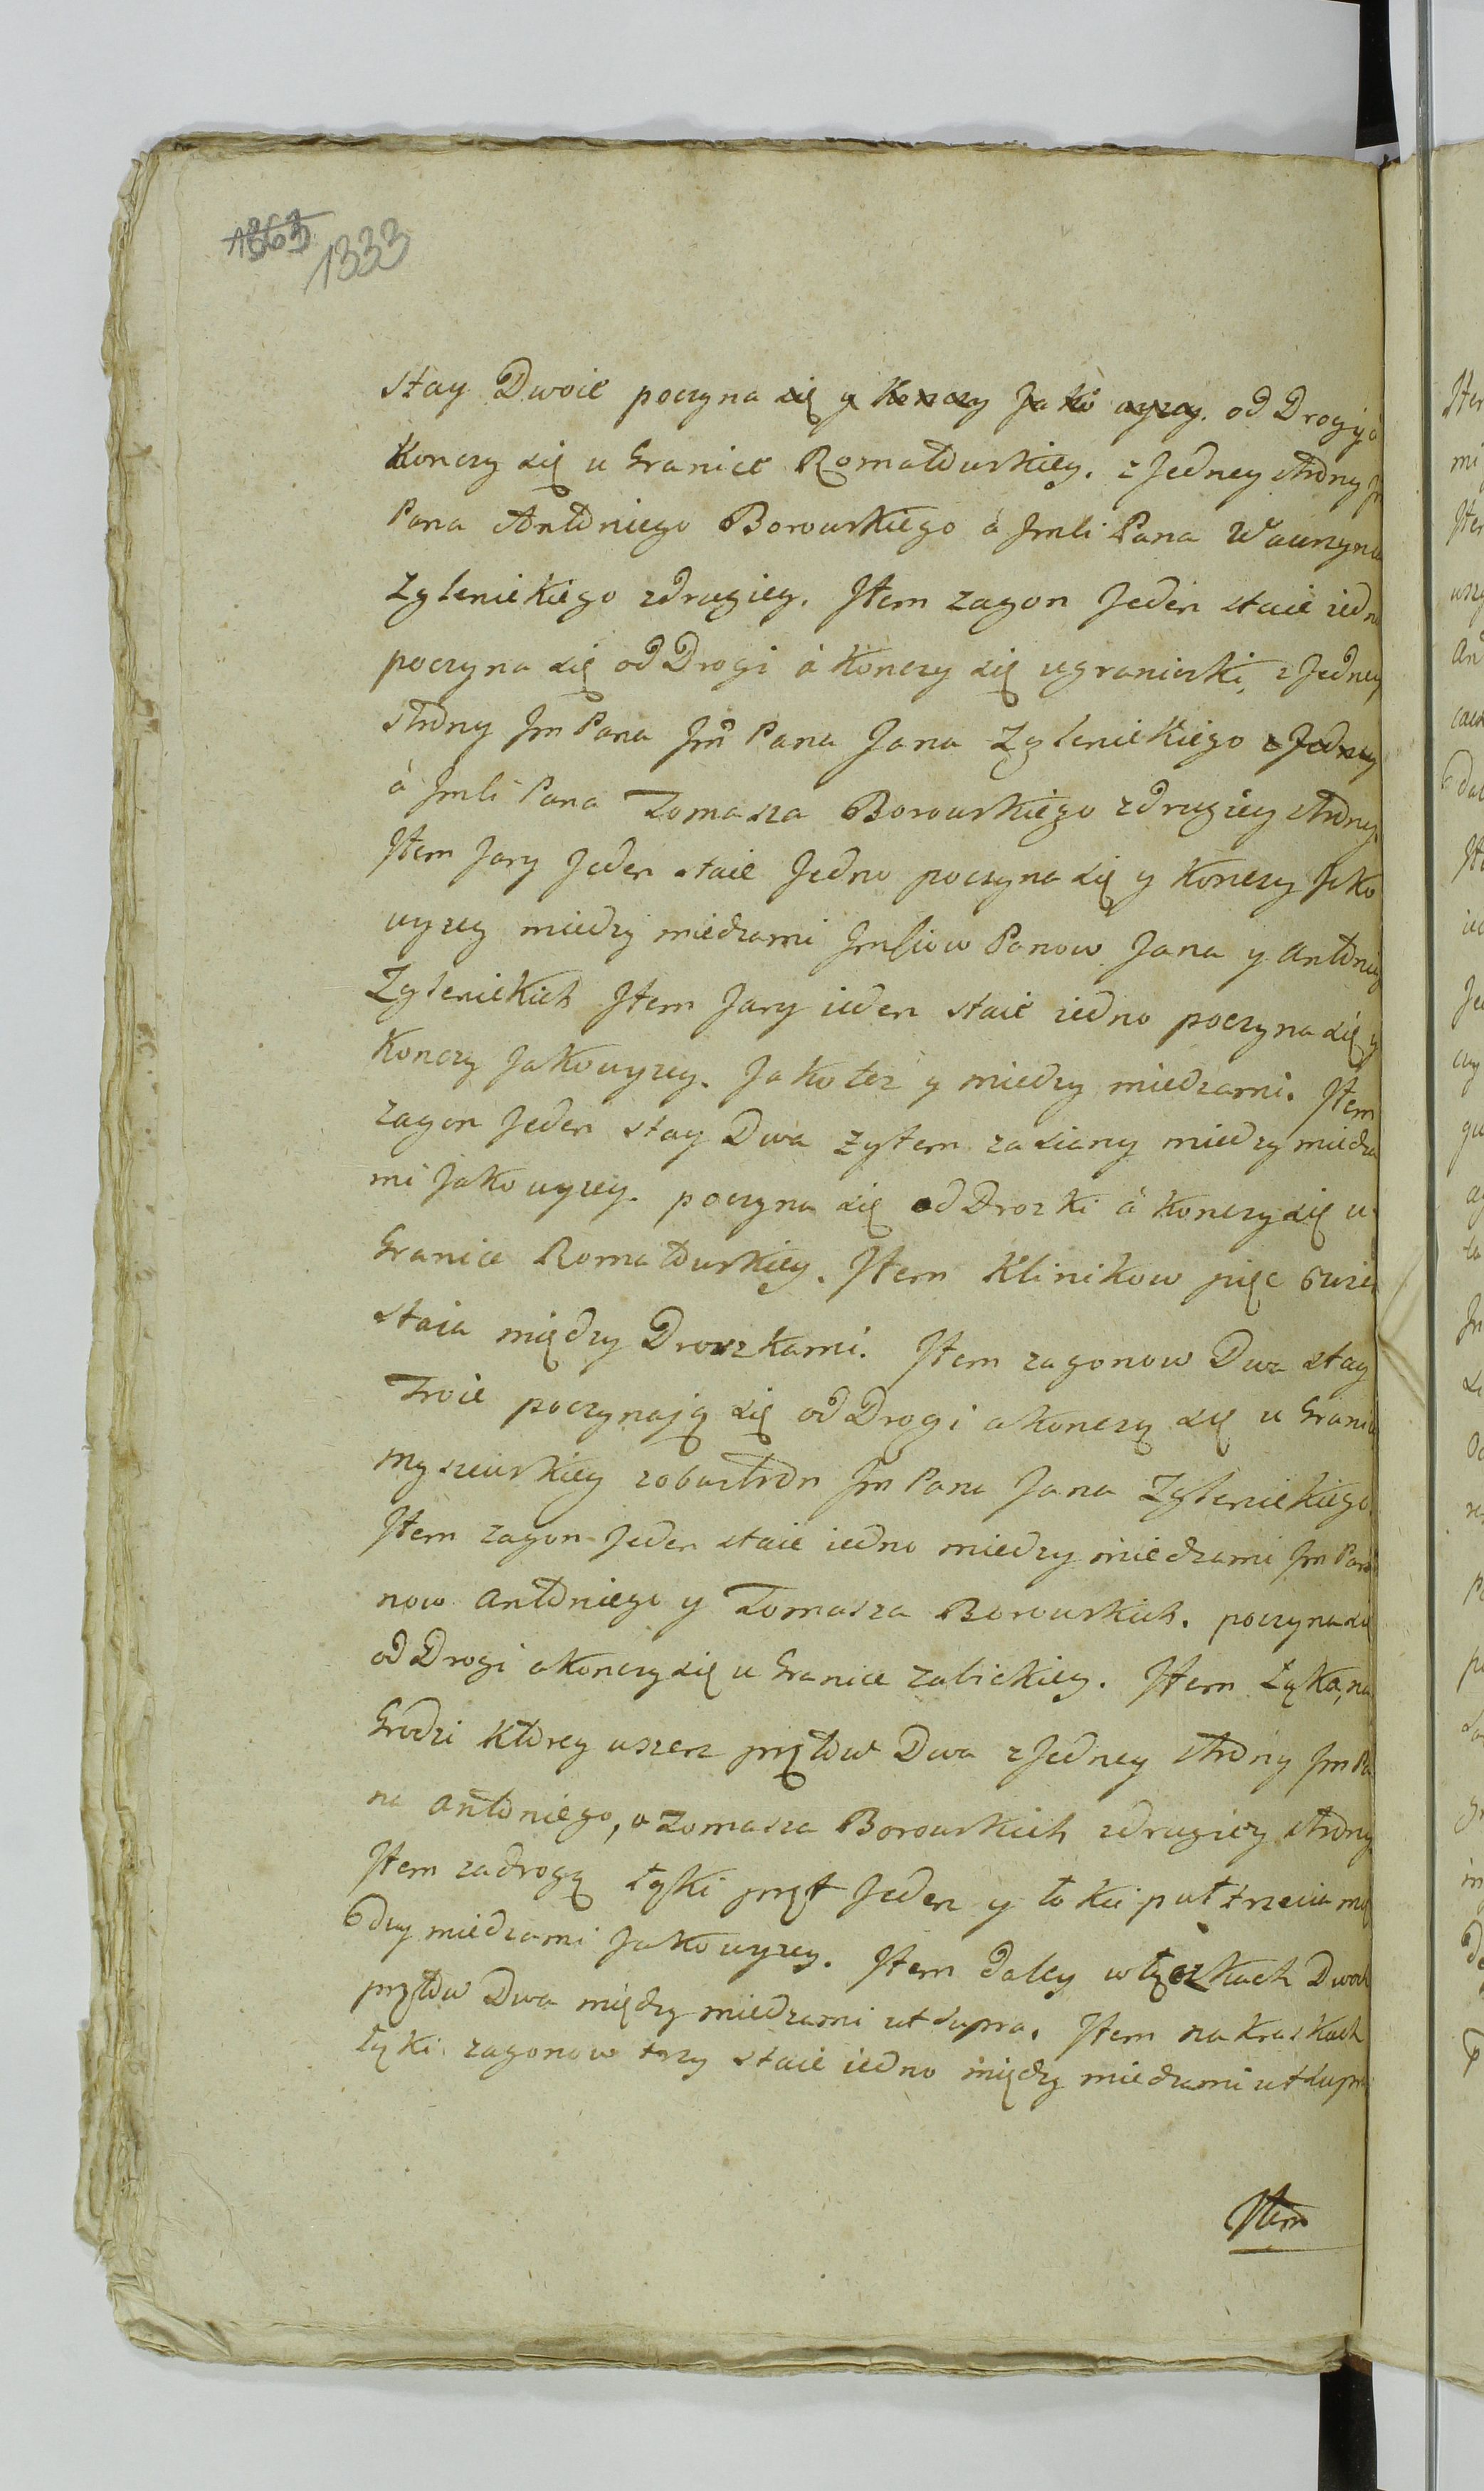 1363 1333
stay Dwoie poczyna się y Konczy Jako wyzey. od Drogi à
Konczy się u Granice Romatowskiey. z Jedney strony Jm
Pana Antoniego Borowskiego à Jmći Pana Wawrzynca
Zglenickiego zdrugiey. Item zagon Jeden staie iedno
poczyna się od Drogi à Konczy się ugraniczki, z Jedney
strony Jm Pana Jm Pana Jana Zglenickiego z Jedney
à Jmći Pana Tomasza Borowskiego zdrugiey strony.
Item Jary Jeden staie Jedno poczyna się y Konczy Jako
wyzey miedzy miedzami Jmściow Panow Jana y Antoniego
Zglenickich Item Jary ieden staie iedno poczyna się y
Konczy Jakowyzey. Jako tez y miedzy miedzami. Item
zagon Jeden stay Dwa zytem zasiany miedzy miedza
mi Jakowyzey. poczyna się od Drozki à Konczy się u
Granice Romatowskiey. Item Klinikow pięc
staia między Drozkami. Item zagonow Dwa stay
Troie poczynają się od Drogi a Konczą się u Granice
Myszewskiey zobustron Jm Pana Jana Zglenickiego
Item zagon Jeden staie iedno miedzy miedzami Jm Pa
now Antoniego y Tomasza Borowskich. poczyna się
od Drogi a Konczy się u Granice Zalickiey. Item Łąka, na
Grodzi Ktorey wszerz prętow Dwa z Jedney strony Jm Pa
na Antoniego, a Tomasza Borowskich zdrugiey strony
Item zadrogą Łąki pręt Jeden y łokci puł trzecia mię
dzy miedzami Jakowyzey. Item daley w łączkach Dwoch
prętow Dwa między miedzami ut supra. Item na Kraskach
Łąki zagonow trzy staie iedno między miedzami ut supra
Item